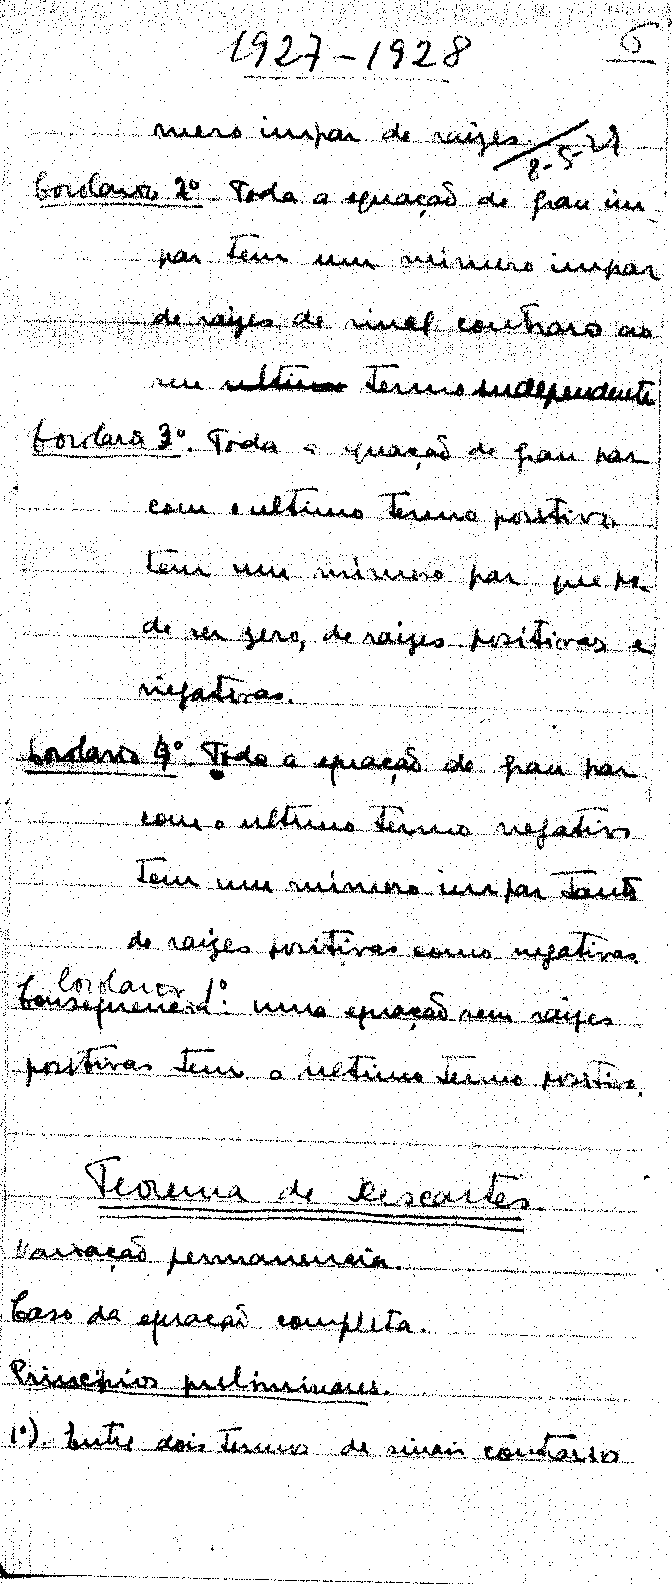 1927-1928 6
mero impar de raizes. 2-5-27
Corolario 2º Toda a equação de grau im-
par tem um número impar
de raizes de sinal contraro ao
seu ultimo termo independente
Corolario 3º. Toda a equação de grau par
com o ultimo termo positivo
tem um número par que po-
de ser zero, de raizes positivas e
negativas.
Corolario 4º Toda a equação de grau par
com o ultimo termo negativo
tem um número impar tanto
de raizes positivas como negativas.
Corolario 1º
Consequencia: uma equação sem raizes
positivas tem o ultimo termo positivo.
Teorema de Descartes.
Variação permanencia.
Caso da equação completa.
Principios preliminares.
1º). Entre dois termos de sinais contrarios